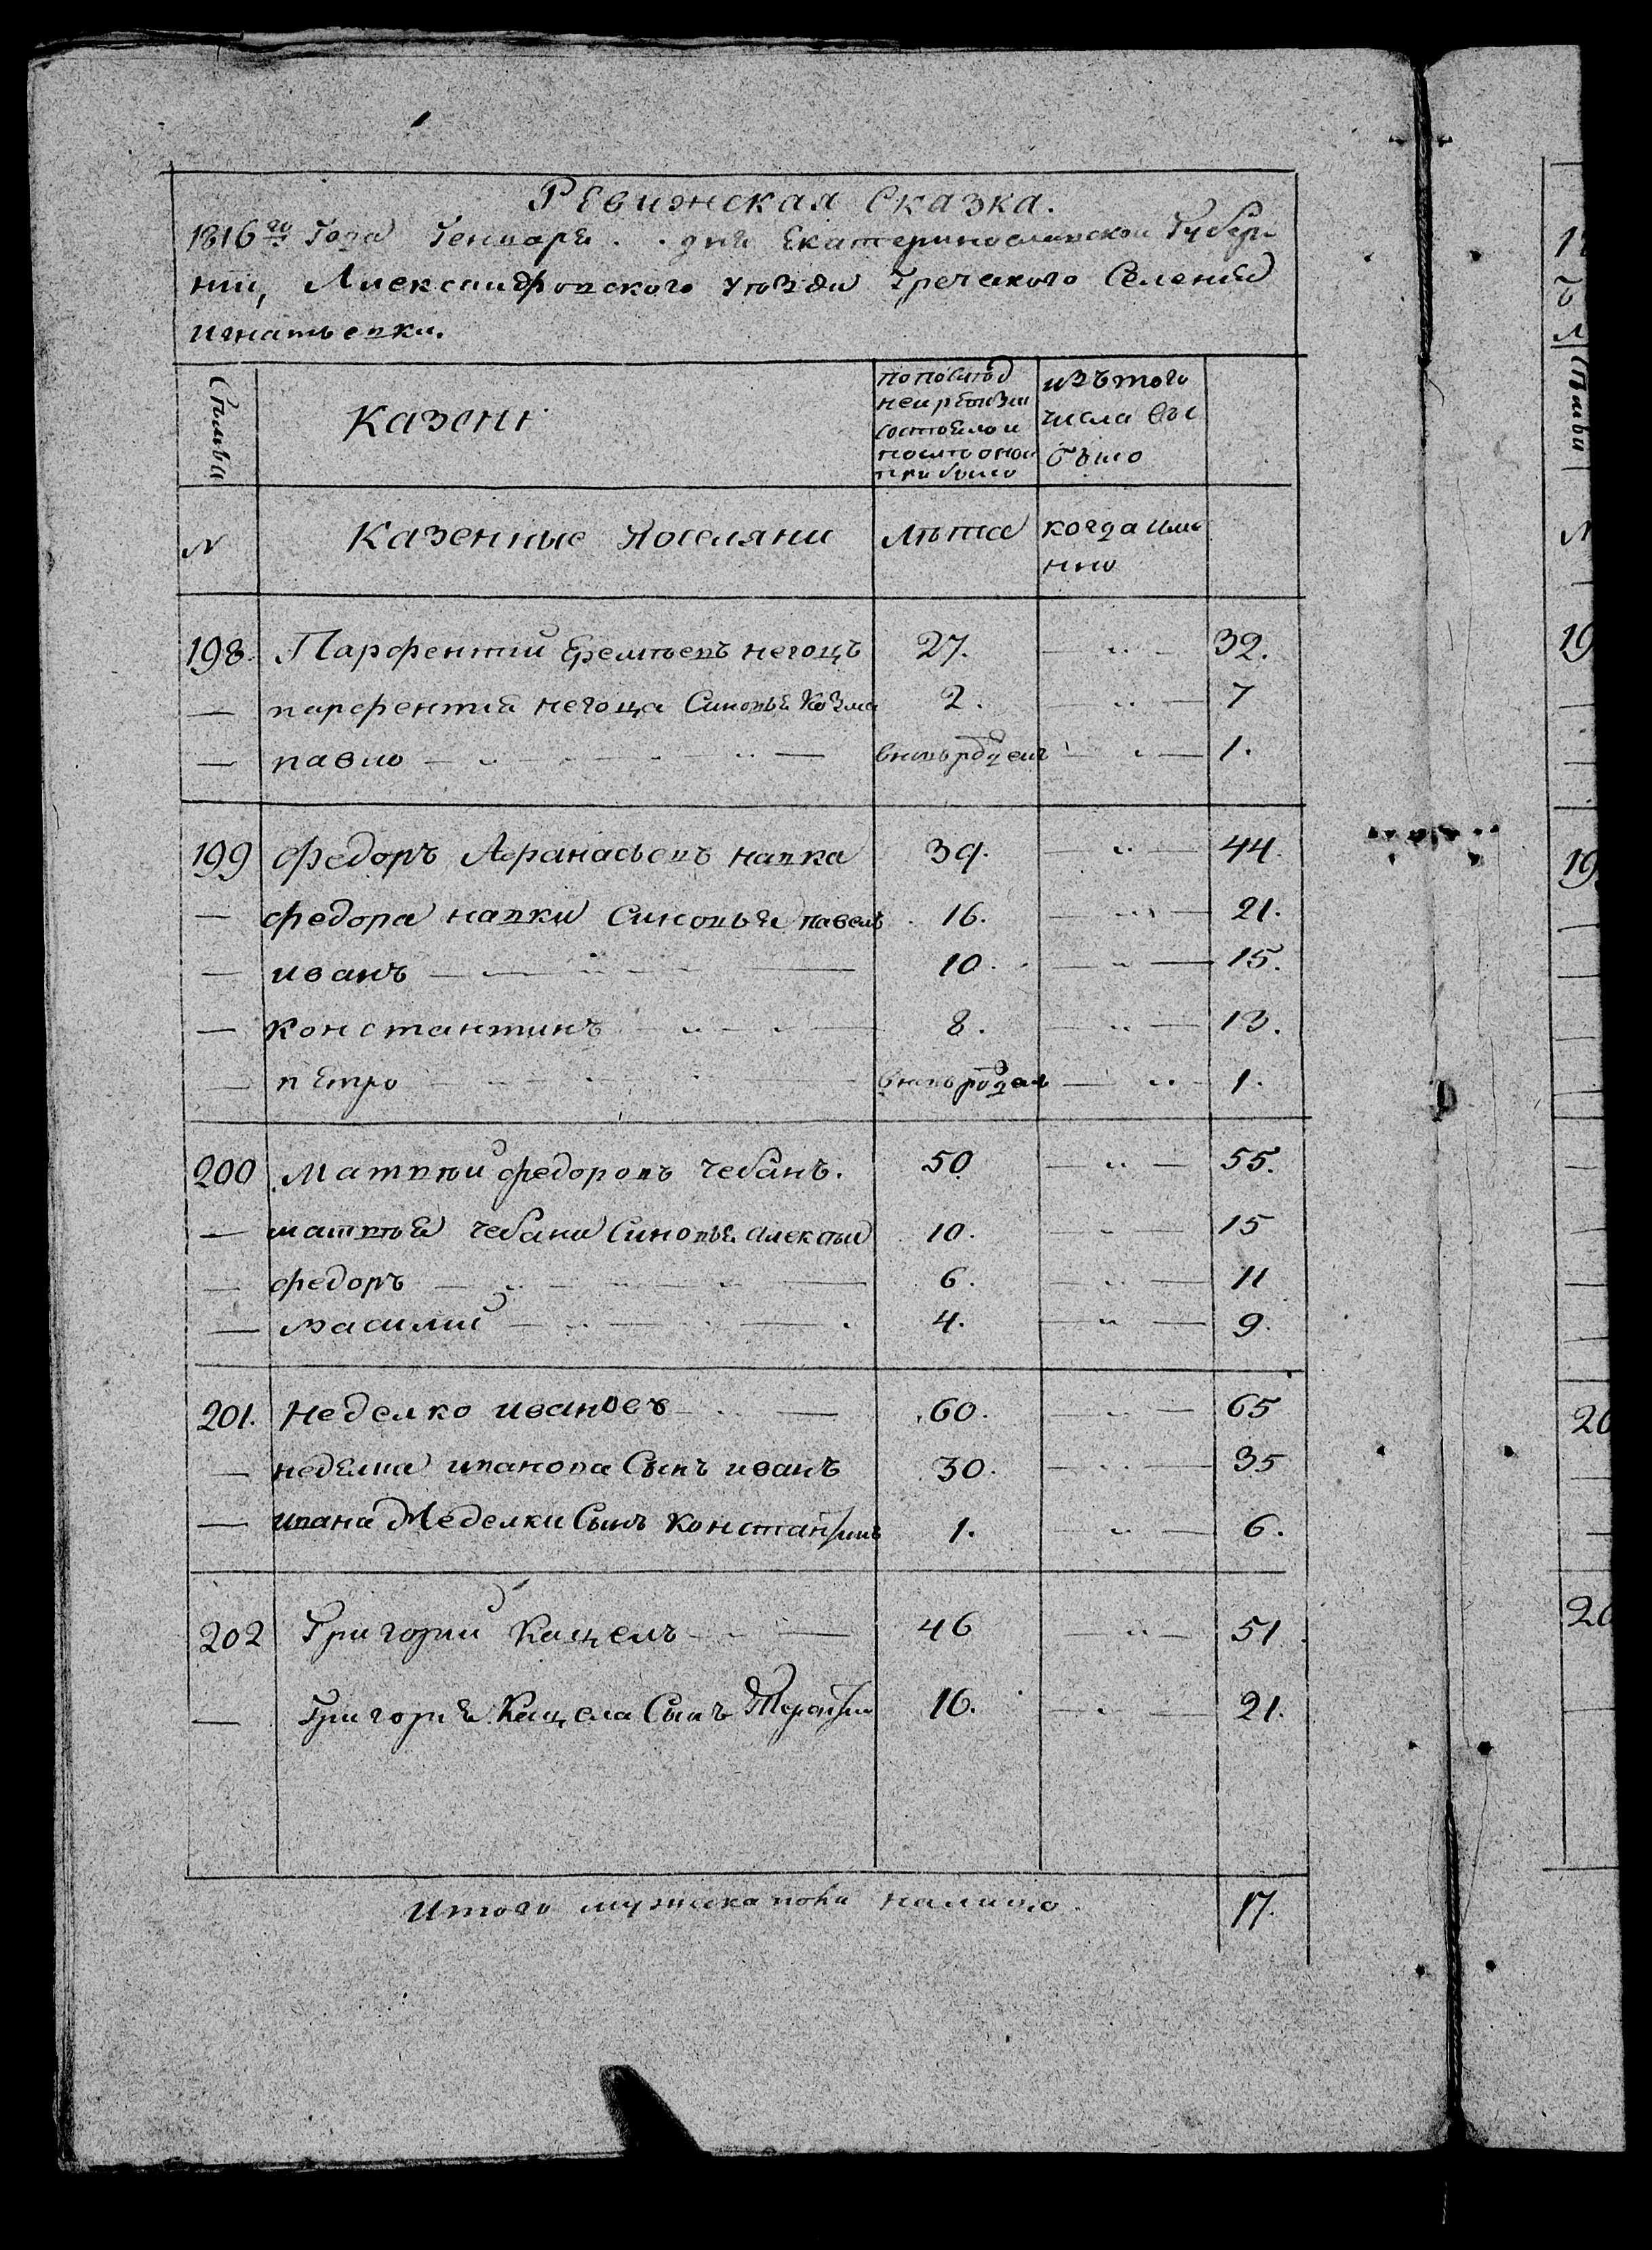 Ревижская Сказка.
1816го Года Генваря . . дня Екатеринославской Губер-
нии, Александровского уезда Греческого Селения
игнатьевки.
Семьи
Казенн:
по послед
ней ревизии
состояло и
после оной
прибыло
изъ того
числа вы
было
N
Казенные Поселяни
лета
когда име
нно
198. Парфентий Еремеевъ негоцъ 27. — " — 32.
— парфентия негоца Синовья Козма 2. — " — 7
— павло — " — " — вновь рожден — " — 1.
199 Федоръ Афанасьевъ напка 39. — " — 44.
— федора напки синовья павелъ 16. — " — 21.
— иванъ — " — 10. — " — 15.
— Константинъ — " — " — 8. — " — 13.
— петро — " — вновь рожден — " — 1.
200 Матвей федоровъ чебанъ. 50 — " — 55.
— матвея чебана Синовья алексей 10. — " — 15
— федоръ — " — " — " — 6. — " — 11
— василий — " — " — 4. — " — 9.
201. Неделко ивановъ — " — 60. — " — 65
— неделка иванова Сынъ иванъ 30. — " — 35
— ивана Неделки Сынъ Константинъ 1. — " — 6.
202 Григорий Кацелъ — " — 46 — " — 51
— Григория Кацела Сынъ 16. — " — 21.
Итого мужеска пола налицо. 17.
19
19
20
20